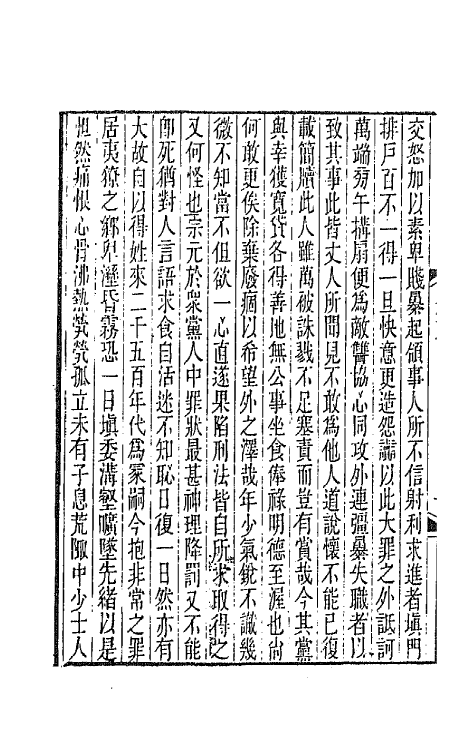 交怒加以素卑賤㬥起領事人所不信射利求進者塡門
排戶百不一得一旦快意更造怨讟以此大罪之外詆訶
萬端旁午搆扇便爲敵讐協心同攻外連彊㬥失職者以
致其事此皆丈人所聞見不敢爲他人道說懷不能已復
載簡牘此人雖萬被誅戮不足塞責而豈有賞哉今其黨
與幸獲寬貸各得善地無公事坐食俸祿明德至渥也尙
何敢更俟除棄廢痼以希望外之澤哉年少氣銳不識幾
微不知當不但欲一心直遂果陷刑法皆自所求取得之
又何怪也宗元於衆黨人中罪狀最甚神理降罰又不能
卽死猶對人言語求食自活迷不知恥日復一日然亦有
大故自以得姓來二千五百年代爲冢嗣今抱非常之罪
居夷獠之鄉卑溼昏霧恐一日塡委溝壑曠墜先緒以是
怛然痛恨心骨沸熱煢煢孤立未有子息荒陬中少士人